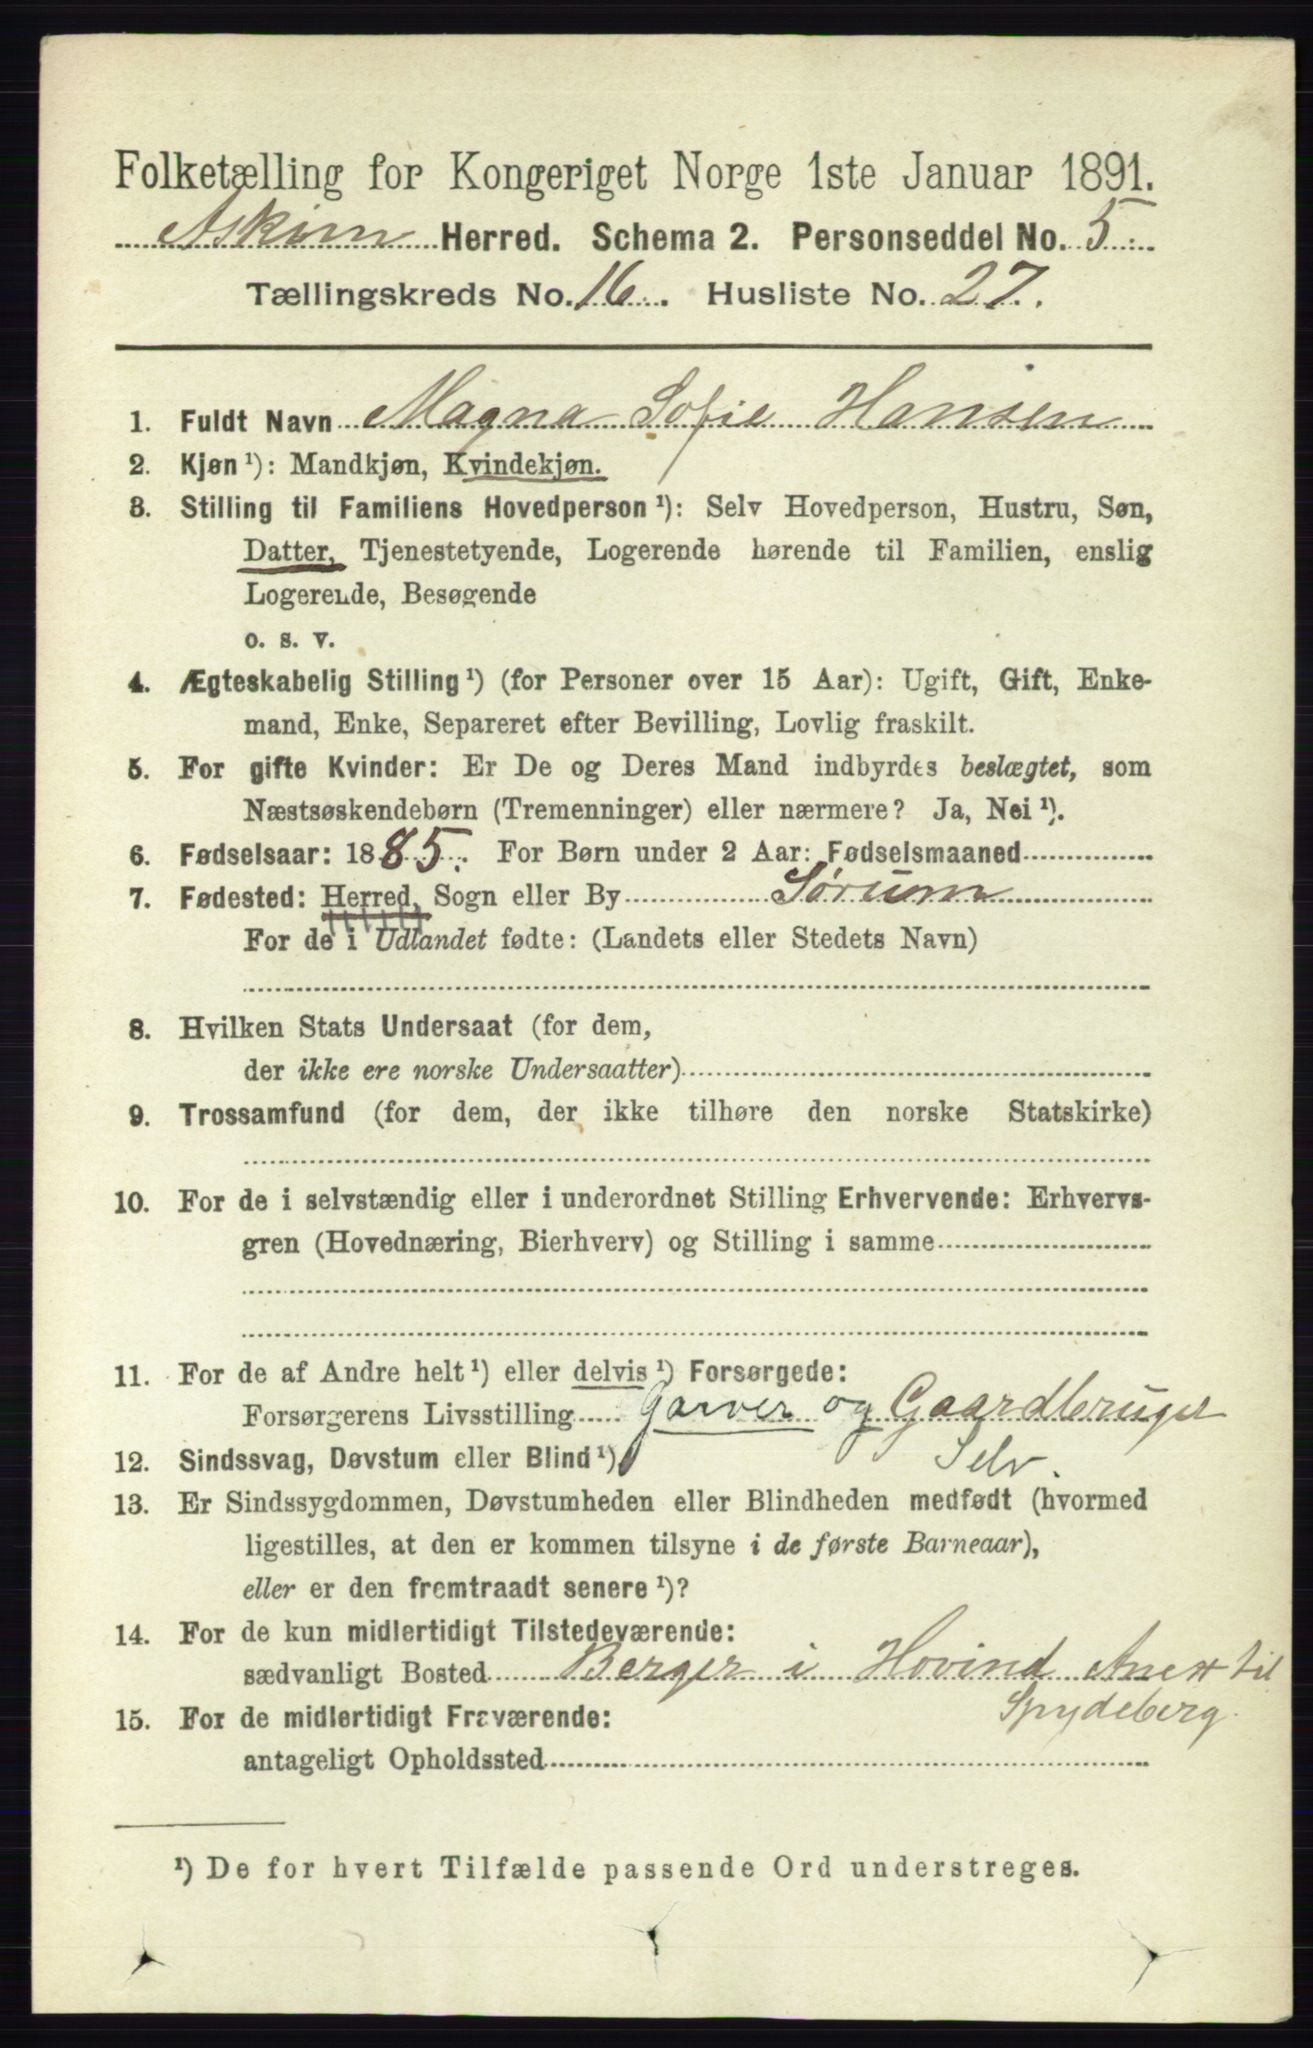 Folketælling for Kongeriget Norge 1ste Januar 1891.
Askim Herred. Schema 2. Personseddel No. 5
Tællingskreds No. 16. Husliste No. 27.
1. Fuldt Navn Magna Sofie Hansen
2. Kjøn¹): Mandkjøn, Kvindekjøn.
3. Stilling til Familiens Hovedperson¹): Selv Hovedperson, Hustru, Søn,
Datter, Tjenestetyende, Logerende hørende til Familien, enslig
Logerende, Besøgende
o. s. v.
4. Ægteskabelig Stilling¹) (for Personer over 15 Aar): Ugift, Gift, Enke-
mand, Enke, Separeret efter Bevilling, Lovlig fraskilt.
5. For gifte Kvinder: Er De og Deres Mand indbyrdes beslægtet, som
Næstsøskendebørn (Tremenninger) eller nærmere? Ja, Nei¹).
6. Fødselsaar: 1885. For Børn under 2 Aar: Fødselsmaaned
7. Fødested: Herred, Sogn eller By Sørum
For de i Udlandet fødte: (Landets eller Stedets Navn)
8. Hvilken Stats Undersaat (for dem,
der ikke ere norske Undersaatter)
9. Trossamfund (for dem, der ikke tilhøre den norske Statskirke)
10. For de i selvstændig eller i underordnet Stilling Erhvervende: Erhvervs-
gren (Hovednæring, Bierhverv) og Stilling i samme
11. For de af Andre helt¹) eller delvis¹) Forsørgede:
Forsørgerens Livsstilling Garver og Gaardbruger
Selv.
12. Sindssvag, Døvstum eller Blind¹)
13. Er Sindssygdommen, Døvstumheden eller Blindheden medfødt (hvormed
ligestilles, at den er kommen tilsyne i de første Barneaar),
eller er den fremtraadt senere¹)?
14. For de kun midlertidigt Tilstedeværende:
sædvanligt Bosted Berger i Hovind Anex til
Spydeberg.
15. For de midlertidigt Fraværende:
antageligt Opholdssted
¹) De for hvert Tilfælde passende Ord understreges.